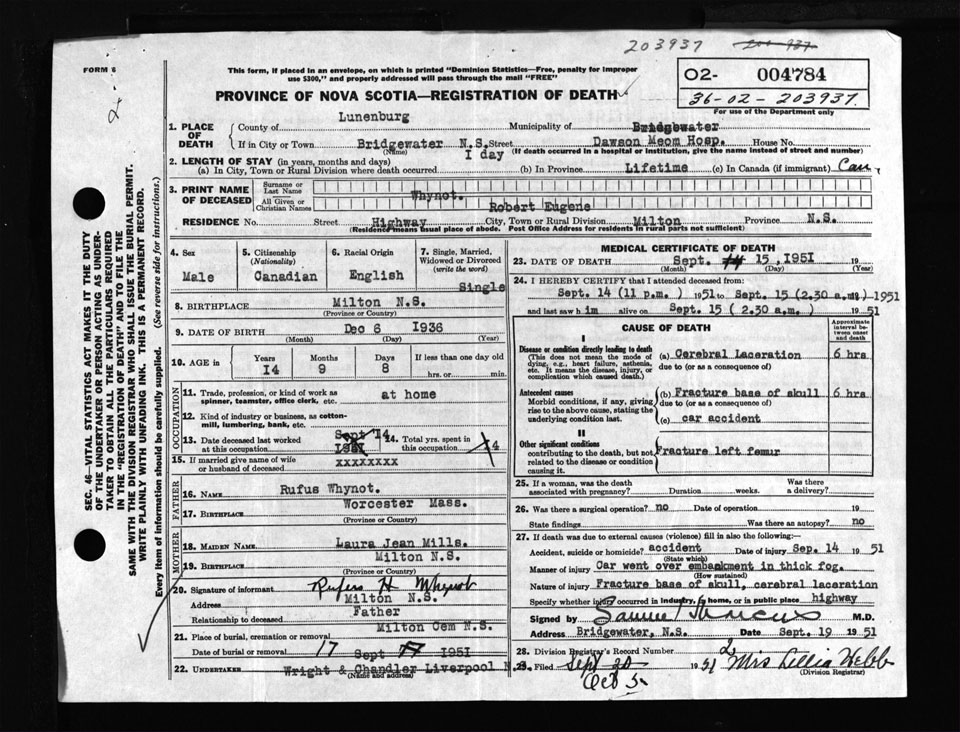 203937 203937
FORM 6
This form, if placed in an envelope, on which is printed "Dominion Statistics—Free, penalty for improper
use $300," and properly addressed will pass through the mail "FREE"
O2- 004784
36-02-203937.
For use of the Department only
PROVINCE OF NOVA SCOTIA—REGISTRATION OF DEATH
1. PLACE OF DEATH
County of Lunenburg Municipality of Bridgewater
If in City or Town Bridgewater N.S. Street Dawson Meom Hosp. House No.
(Name) (If death occurred in a hospital or institution, give the name instead of street and number)
2. LENGTH OF STAY (in years, months and days)
(a) In City, Town or Rural Division where death occurred I day (b) In Province Lifetime (c) In Canada (if immigrant) Can
3. PRINT NAME OF DECEASED
Surname or Last Name Whynot.
All Given or Christian Names Robert Eugene
RESIDENCE No. Street Highway City, Town or Rural Division Milton Province N.S.
(Residence means usual place of abode. Post Office Address for residents in rural parts not sufficient)
4. Sex
Male
5. Citizenship
(Nationality)
Canadian
6. Racial Origin
English
7. Single, Married,
Widowed or Divorced
(write the word)
Single
8. BIRTHPLACE Milton N.S.
(Province or Country)
9. DATE OF BIRTH Dec 6 I936
(Month) (Day) (Year)
10. AGE in Years Months Days If less than one day old
I4 9 8 hrs. or min.
OCCUPATION
11. Trade, profession, or kind of work as
spinner, teamster, office clerk, etc. at home
12. Kind of industry or business, as cotton-
mill, lumbering, bank, etc.
13. Date deceased last worked
at this occupation Sept 14 I951
14. Total yrs. spent in
this occupation 4
15. If married give name of wife
or husband of deceased xxxxxxxx
FATHER
16. NAME Rufus Whynot.
17. BIRTHPLACE Worcester Mass.
(Province or Country)
MOTHER
18. MAIDEN NAME Laura Jean Mills.
19. BIRTHPLACE Milton N.S.
(Province or Country)
20. Signature of informant Rufus H Whynot
Address Milton N.S.
Relationship to deceased Father
21. Place of burial, cremation or removal Milton Cem N.S.
Date of burial or removal 17 Sept I951
22. UNDERTAKER Wright & Chandler Liverpool N.S.
(Name and address)
MEDICAL CERTIFICATE OF DEATH
23. DATE OF DEATH Sept. 14 15, I95I 19
(Month) (Day) (Year)
24. I HEREBY CERTIFY that I attended deceased from
Sept. 14 (11 p.m.) 1951 to Sept. 15 (2.30 a.m.) 1951
and last saw him alive on Sept. 15 (2.30 a.m.) 1951
CAUSE OF DEATH
Approximate interval between onset and death
I
Disease or condition directly leading to death
(This does not mean the mode of
dying, e.g., heart failure, asthenia,
etc. It means the disease, injury, or
complication which caused death.)
(a) Cerebral Laceration 6 hrs.
due to (or as a consequence of)
Antecedent causes
Morbid conditions, if any, giving
rise to the above cause, stating the
underlying condition last.
(b) Fracture base of skull 6 hrs.
due to (or as a consequence of)
(c) car accident
II
Other significant conditions
contributing to the death, but not
related to the disease or condition
causing it.
Fracture left femur
25. If a woman, was the death
associated with pregnancy? Duration weeks. Was there
a delivery?
26. Was there a surgical operation? no Date of operation 19
State findings Was there an autopsy? no
27. If death was due to external causes (violence) fill in also the following:
Accident, suicide or homicide? accident Date of injury Sep. 14 1951
(State which)
Manner of injury Car went over embankment in thick fog.
(How sustained)
Nature of injury Fracture base of skull, cerebral laceration
Specify whether injury occurred in industry, home, or in public place highway
Signed by Samuel Marcus M.D.
Address Bridgewater, N.S. Date Sept. 19 1951
28. Division Registrar's Record Number 2
29. Filed Sept 20 1951 Mrs Lellia Webb
Oct 5. (Division Registrar)
SEC. 46—VITAL STATISTICS ACT MAKES IT THE DUTY
OF THE UNDERTAKER OR PERSON ACTING AS UNDER-
TAKER TO OBTAIN ALL THE PARTICULARS REQUIRED
IN THE "REGISTRATION OF DEATH" AND TO FILE THE
SAME WITH THE DIVISION REGISTRAR WHO SHALL ISSUE THE BURIAL PERMIT.
WRITE PLAINLY WITH UNFADING INK. THIS IS A PERMANENT RECORD.
Every item of information should be carefully supplied. (See reverse side for instructions.)